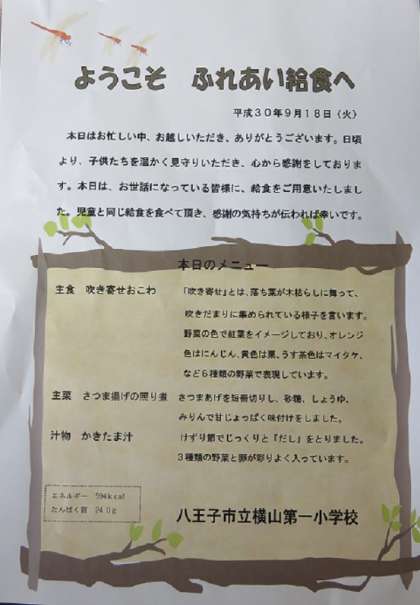 ようこそ　ふれあい給食へ
平成30年9月18日（火）
本日はお忙しい中、お越しいただき、ありがとうございます。日頃
より、子供たちを温かく見守りいただき、心から感謝をしておりま
す。本日は、お世話になっている皆様に、給食をご用意いたしまし
た。児童と同じ給食を食べて頂き、感謝の気持ちが伝われば幸いです。
本日のメニュー
主食　吹き寄せおこわ　「吹き寄せ」とは、落ち葉が木枯らしに舞って、
吹きだまりに集められている様子を言います。
野菜の色で紅葉をイメージしており、オレンジ
色はにんじん、黄色は栗、うす茶色はマイタケ、
など6種類の野菜で表現しています。
主菜　さつま揚げの照り煮　さつまあげを短冊切りし、砂糖、しょうゆ、
みりんで甘じょっぱく味付けをしました。
汁物　かきたま汁　けずり節でじっくりと『だし』をとりました。
3種類の野菜と卵が彩りよく入っています。
エネルギー　594kcal
たんぱく質　24.0g
八王子市立横山第一小学校